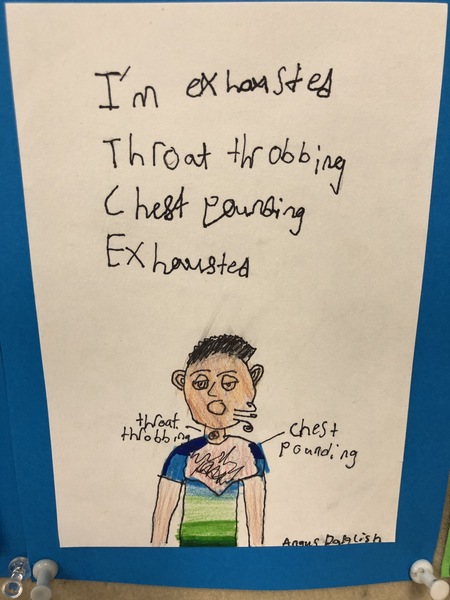 I'm exhausted
Throat throbbing
Chest pounding
Exhausted
throat
throbbing
chest
pounding
Angus Dalglish